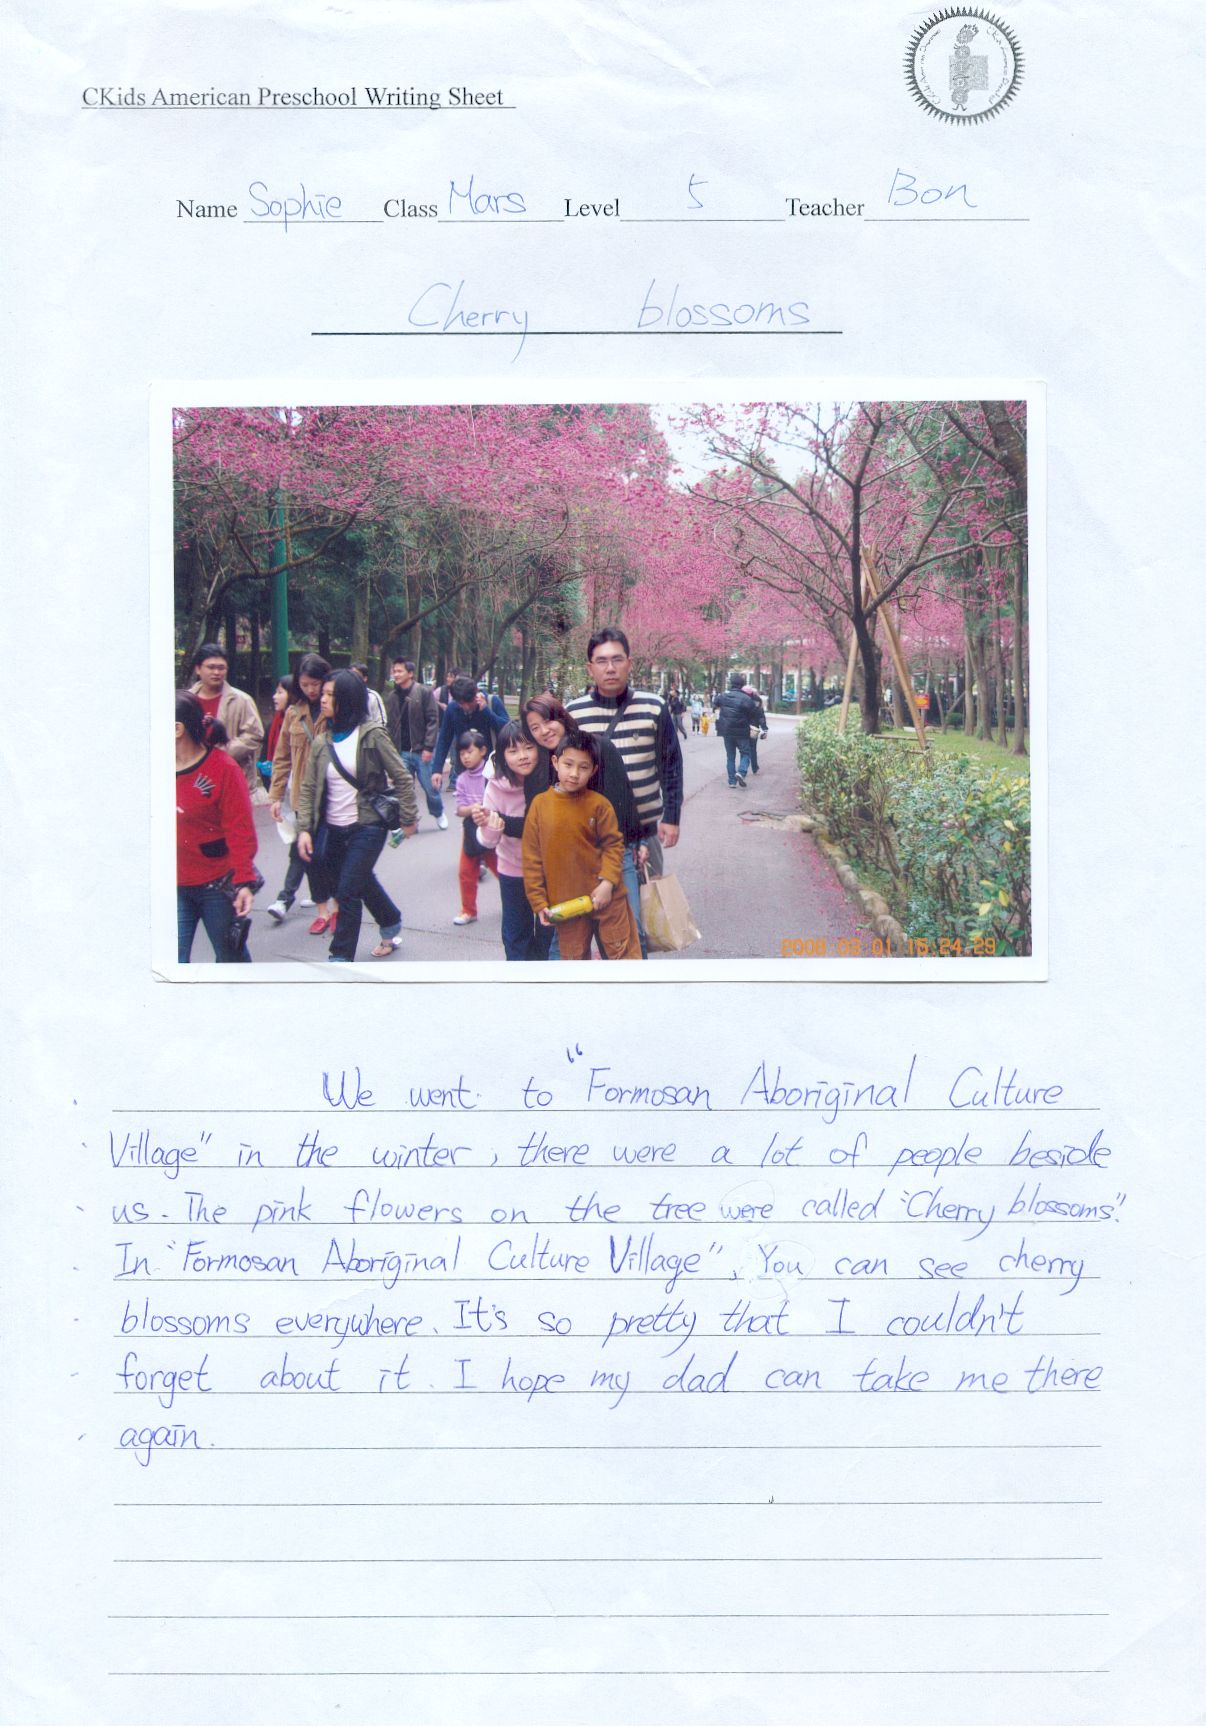 CKids American Preschool Writing Sheet
Name Sophie Class Mars Level 5 Teacher Bon
Cherry blossoms
2008.03.01 15.24.29
We went to "Formosan Aboriginal Culture
Village" in the winter, there were a lot of people beside
us. The pink flowers on the tree were called "Cherry blossoms".
In "Formosan Aboriginal Culture Village", You can see cherry
blossoms everywhere. It's so pretty that I couldn't
forget about it. I hope my dad can take me there
again.